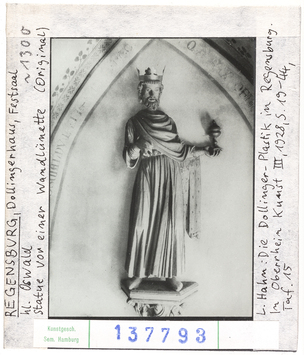 REGENSBURG, Dollingerhaus, Festsaal
hl. Oswald ~ 1300
Statue vor einer Wandlünette (Original)
L. Hahm: Die Dollinger-Plastik in Regensburg.
In Oberrhein. Kunst III, 1928, S. 19-44,
Taf. 15
Kunstgesch.
Sem. Hamburg
137793